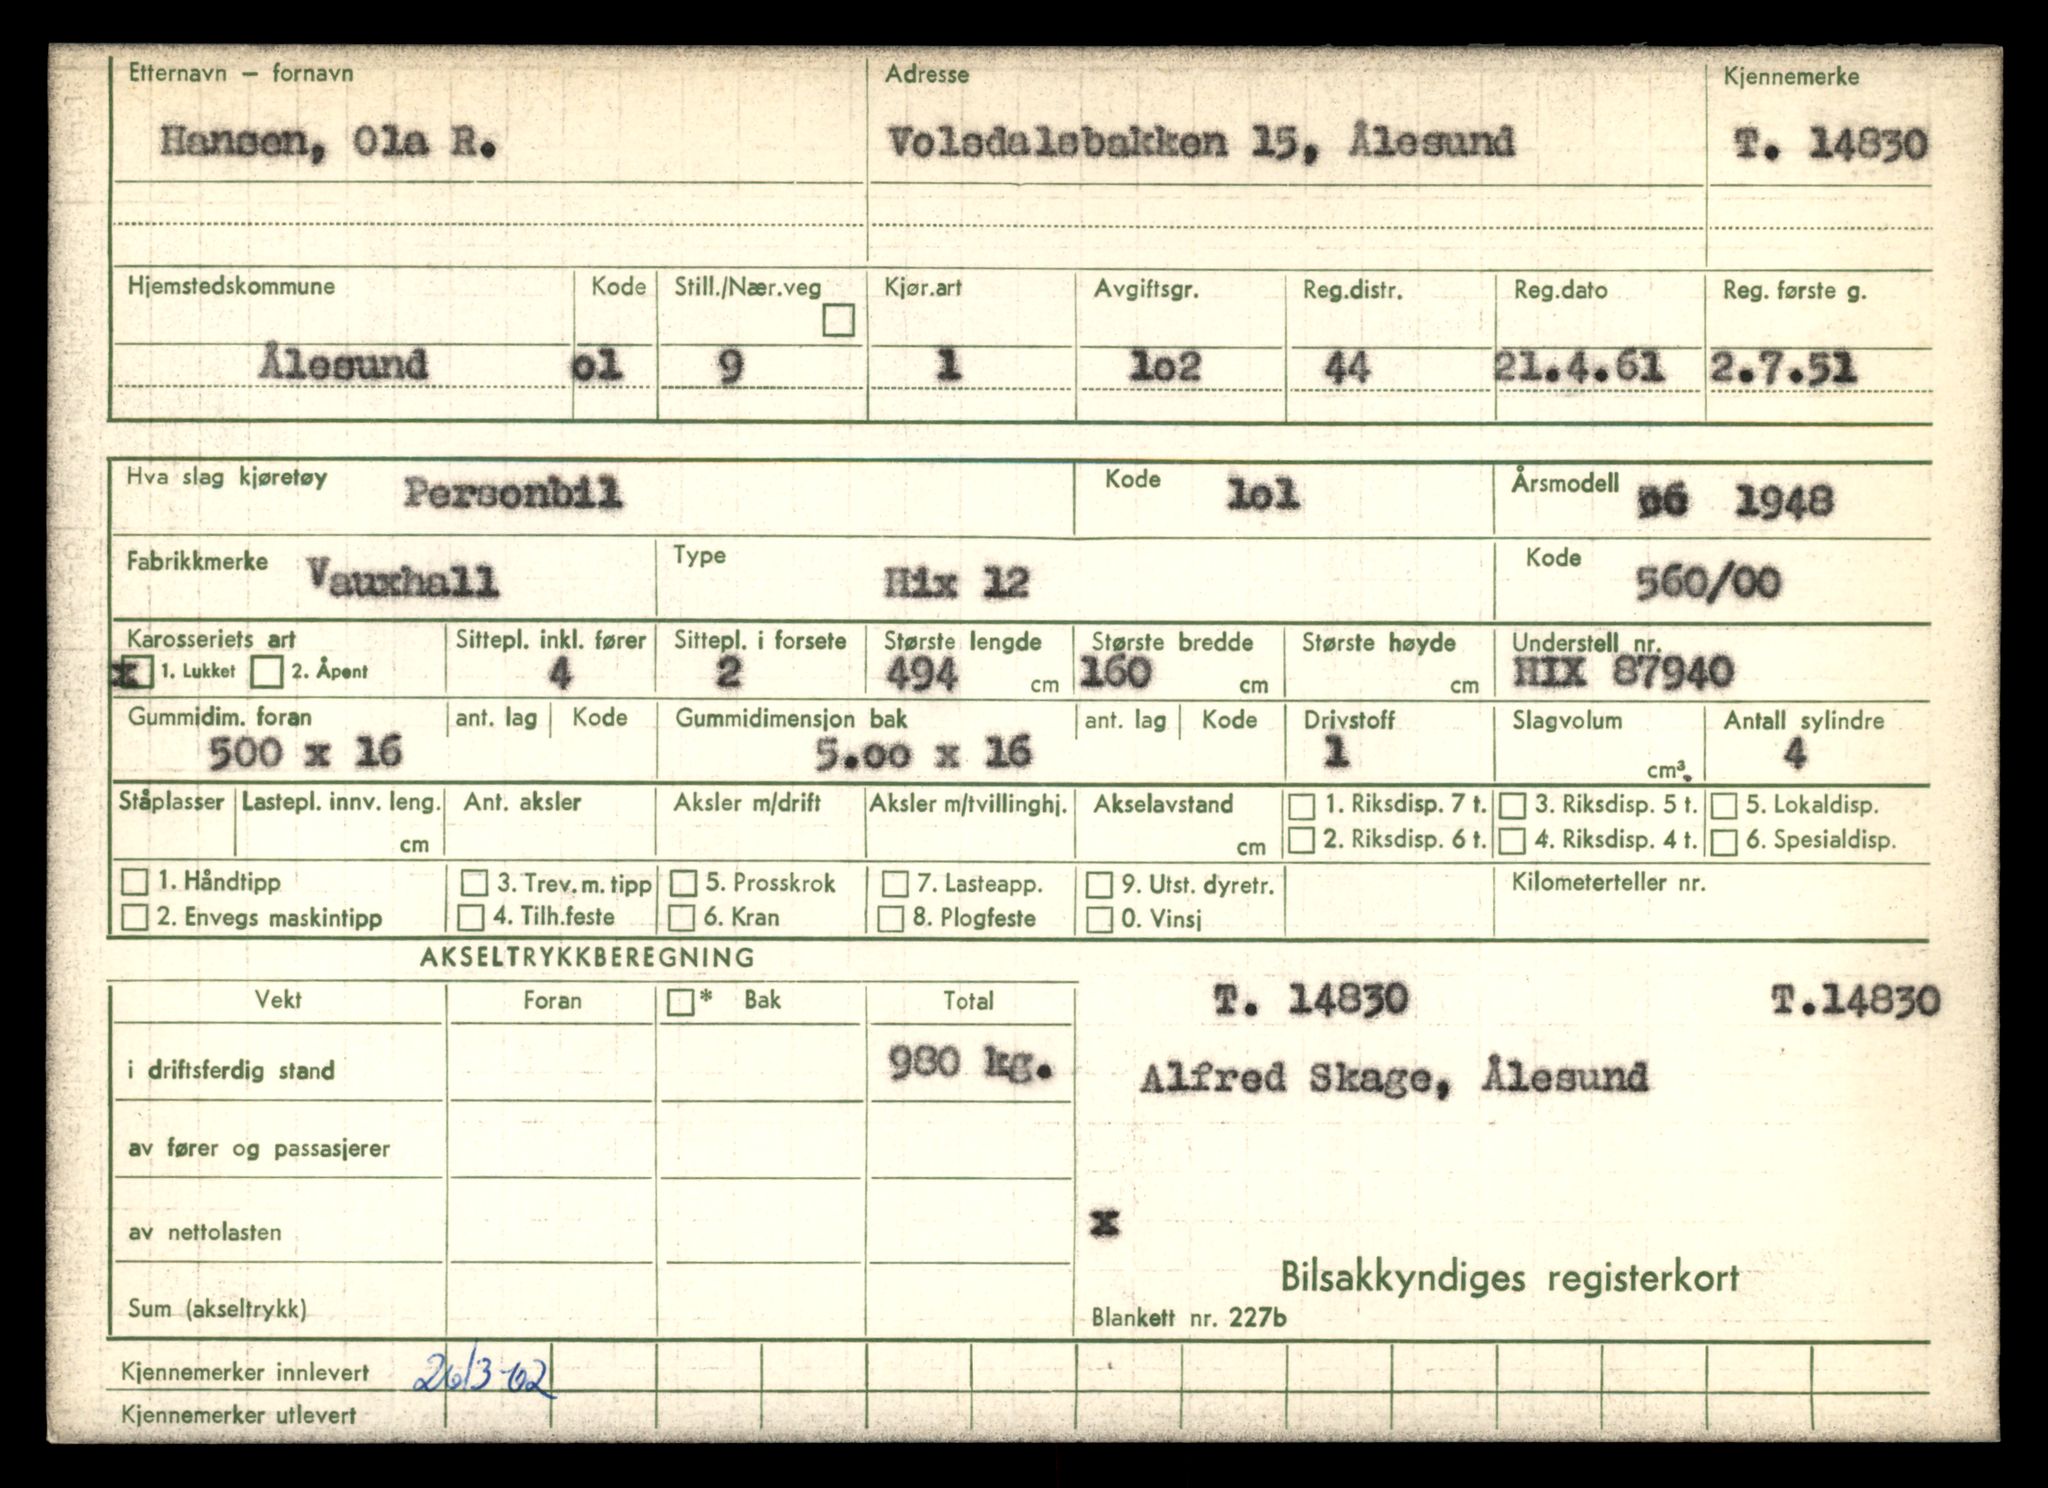 Etternavn — fornavn Adresse Kjennemerke
Hansen, Ola R. Volsdalsbakken 15, Ålesund T. 14830
Hjemstedskommune Kode Still./Nær.veg Kjør.art Avgiftsgr. Reg.distr. Reg.dato Reg. første g.
Ålesund o1 9 1 1o2 44 21.4.61 2.7.51
Hva slag kjøretøy Personbil Kode 1o1 Årsmodell 1948
Fabrikkmerke Vauxhall Type Hix 12 Kode 560/00
Karosseriets art Sittepl. inkl. fører Sittepl. i forsete Største lengde Største bredde Største høyde Understell nr.
x 1. Lukket 2. Åpent 4 2 494 cm 160 cm cm HIX 87940
Gummidim. foran ant. lag Kode Gummidimensjon bak ant. lag Kode Drivstoff Slagvolum Antall sylindre
500 x 16 5.oo x 16 1 cm³. 4
Ståplasser Lastepl. innv. leng. Ant. aksler Aksler m/drift Aksler m/tvillinghj. Akselavstand 1. Riksdisp. 7 t. 3. Riksdisp. 5 t. 5. Lokaldisp.
cm cm 2. Riksdisp. 6 t. 4. Riksdisp. 4 t. 6. Spesialdisp.
1. Håndtipp 3. Trev. m. tipp 5. Prosskrok 7. Lasteapp. 9. Utst. dyretr. Kilometerteller nr.
2. Envegs maskintipp 4. Tilh.feste 6. Kran 8. Plogfeste 0. Vinsj
AKSELTRYKKBEREGNING
Vekt Foran * Bak Total T. 14830 T.14830
i driftsferdig stand 980 kg. Alfred Skage, Ålesund
av fører og passasjerer
av nettolasten x
Bilsakkyndiges registerkort
Sum (akseltrykk) Blankett nr. 227b
Kjennemerker innlevert 26/3-62
Kjennemerker utlevert